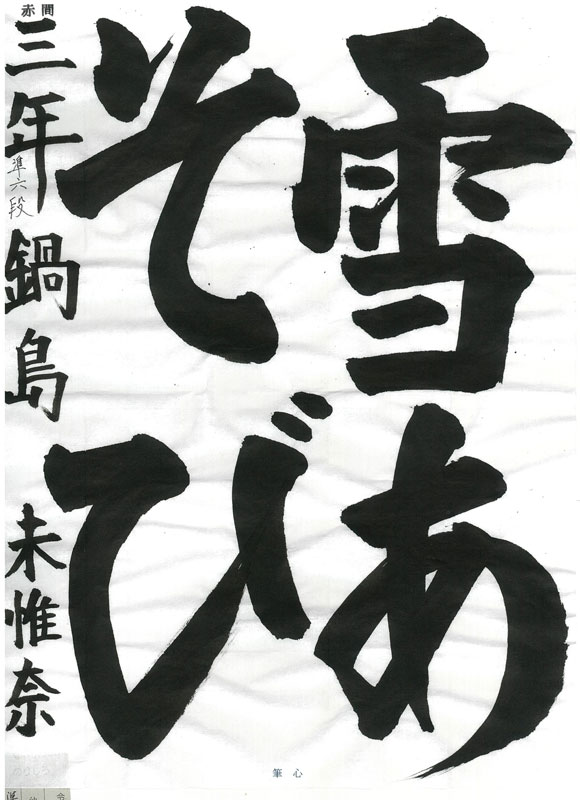 雪あ
そび
赤間
三年 準六段 鍋島 未惟奈
筆心